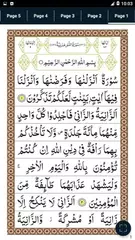 10:03
Page 5 Page 4 Page 3 Page 2 Page 1
بِسْمِ اللَّهِ الرَّحْمَٰنِ الرَّحِيمِ
سُورَةٌ أَنزَلْنَاهَا وَفَرَضْنَاهَا وَأَنزَلْنَا
فِيهَا آيَاتٍ بَيِّنَاتٍ لَّعَلَّكُمْ تَذَكَّرُونَ
الزَّانِيَةُ وَالزَّانِي فَاجْلِدُوا كُلَّ وَاحِدٍ
مِّنْهُمَا مِائَةَ جَلْدَةٍ وَلَا تَأْخُذْكُم
بِهِمَا رَأْفَةٌ فِي دِينِ اللَّهِ إِن كُنتُمْ
تُؤْمِنُونَ بِاللَّهِ وَالْيَوْمِ الْآخِرِ
وَلْيَشْهَدْ عَذَابَهُمَا طَائِفَةٌ مِّنَ
الْمُؤْمِنِينَ الزَّانِي لَا يَنكِحُ إِلَّا
زَانِيَةً أَوْ مُشْرِكَةً وَالزَّانِيَةُ